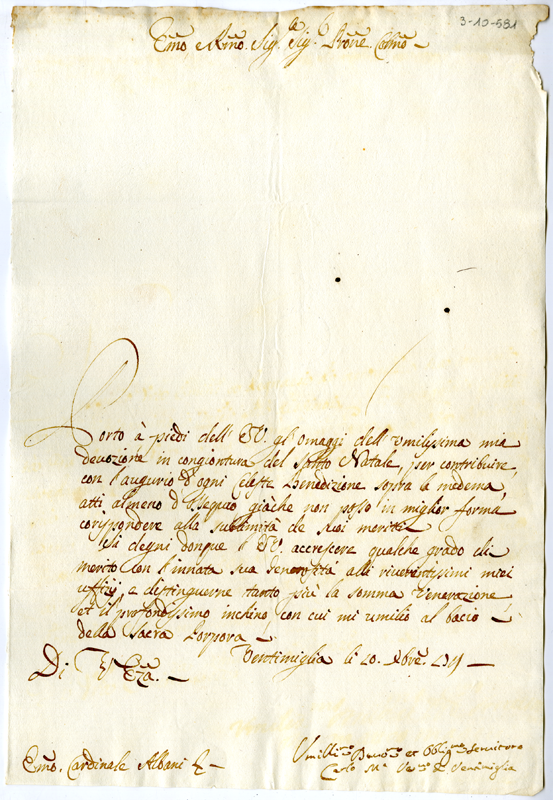 3-10-581
Emo, e Rmo. Sig.r Sig.r Prone. Colmo
Porto à piedi dell' EV. gl' omaggi dell' umilissima mia
devozione in congiontura del Santo Natale, per contribuire,
con l'augurio d'ogni Celeste benedizione sopra la medema,
atti almeno d'ossequio, giàche non posso in miglior forma
corispondere alla sublimità de suoi meriti.
Si degni donque l' EV. accrescere qualche grado di
merito con l'innata sua Generosità alli riverentissimi miei
uffizj, e distinguerne tanto più la somma Venerazione
et il profondissimo inchino, con cui mi umilio al bacio
della Sacra Porpora
Di V. Eza.
Ventimiglia li 20. Xbre.
Emo. Cardinale Albani
Umillmo. Devmo. et Obligmo. Servitore
Carlo Ma. Vesvo. di Ventimiglia